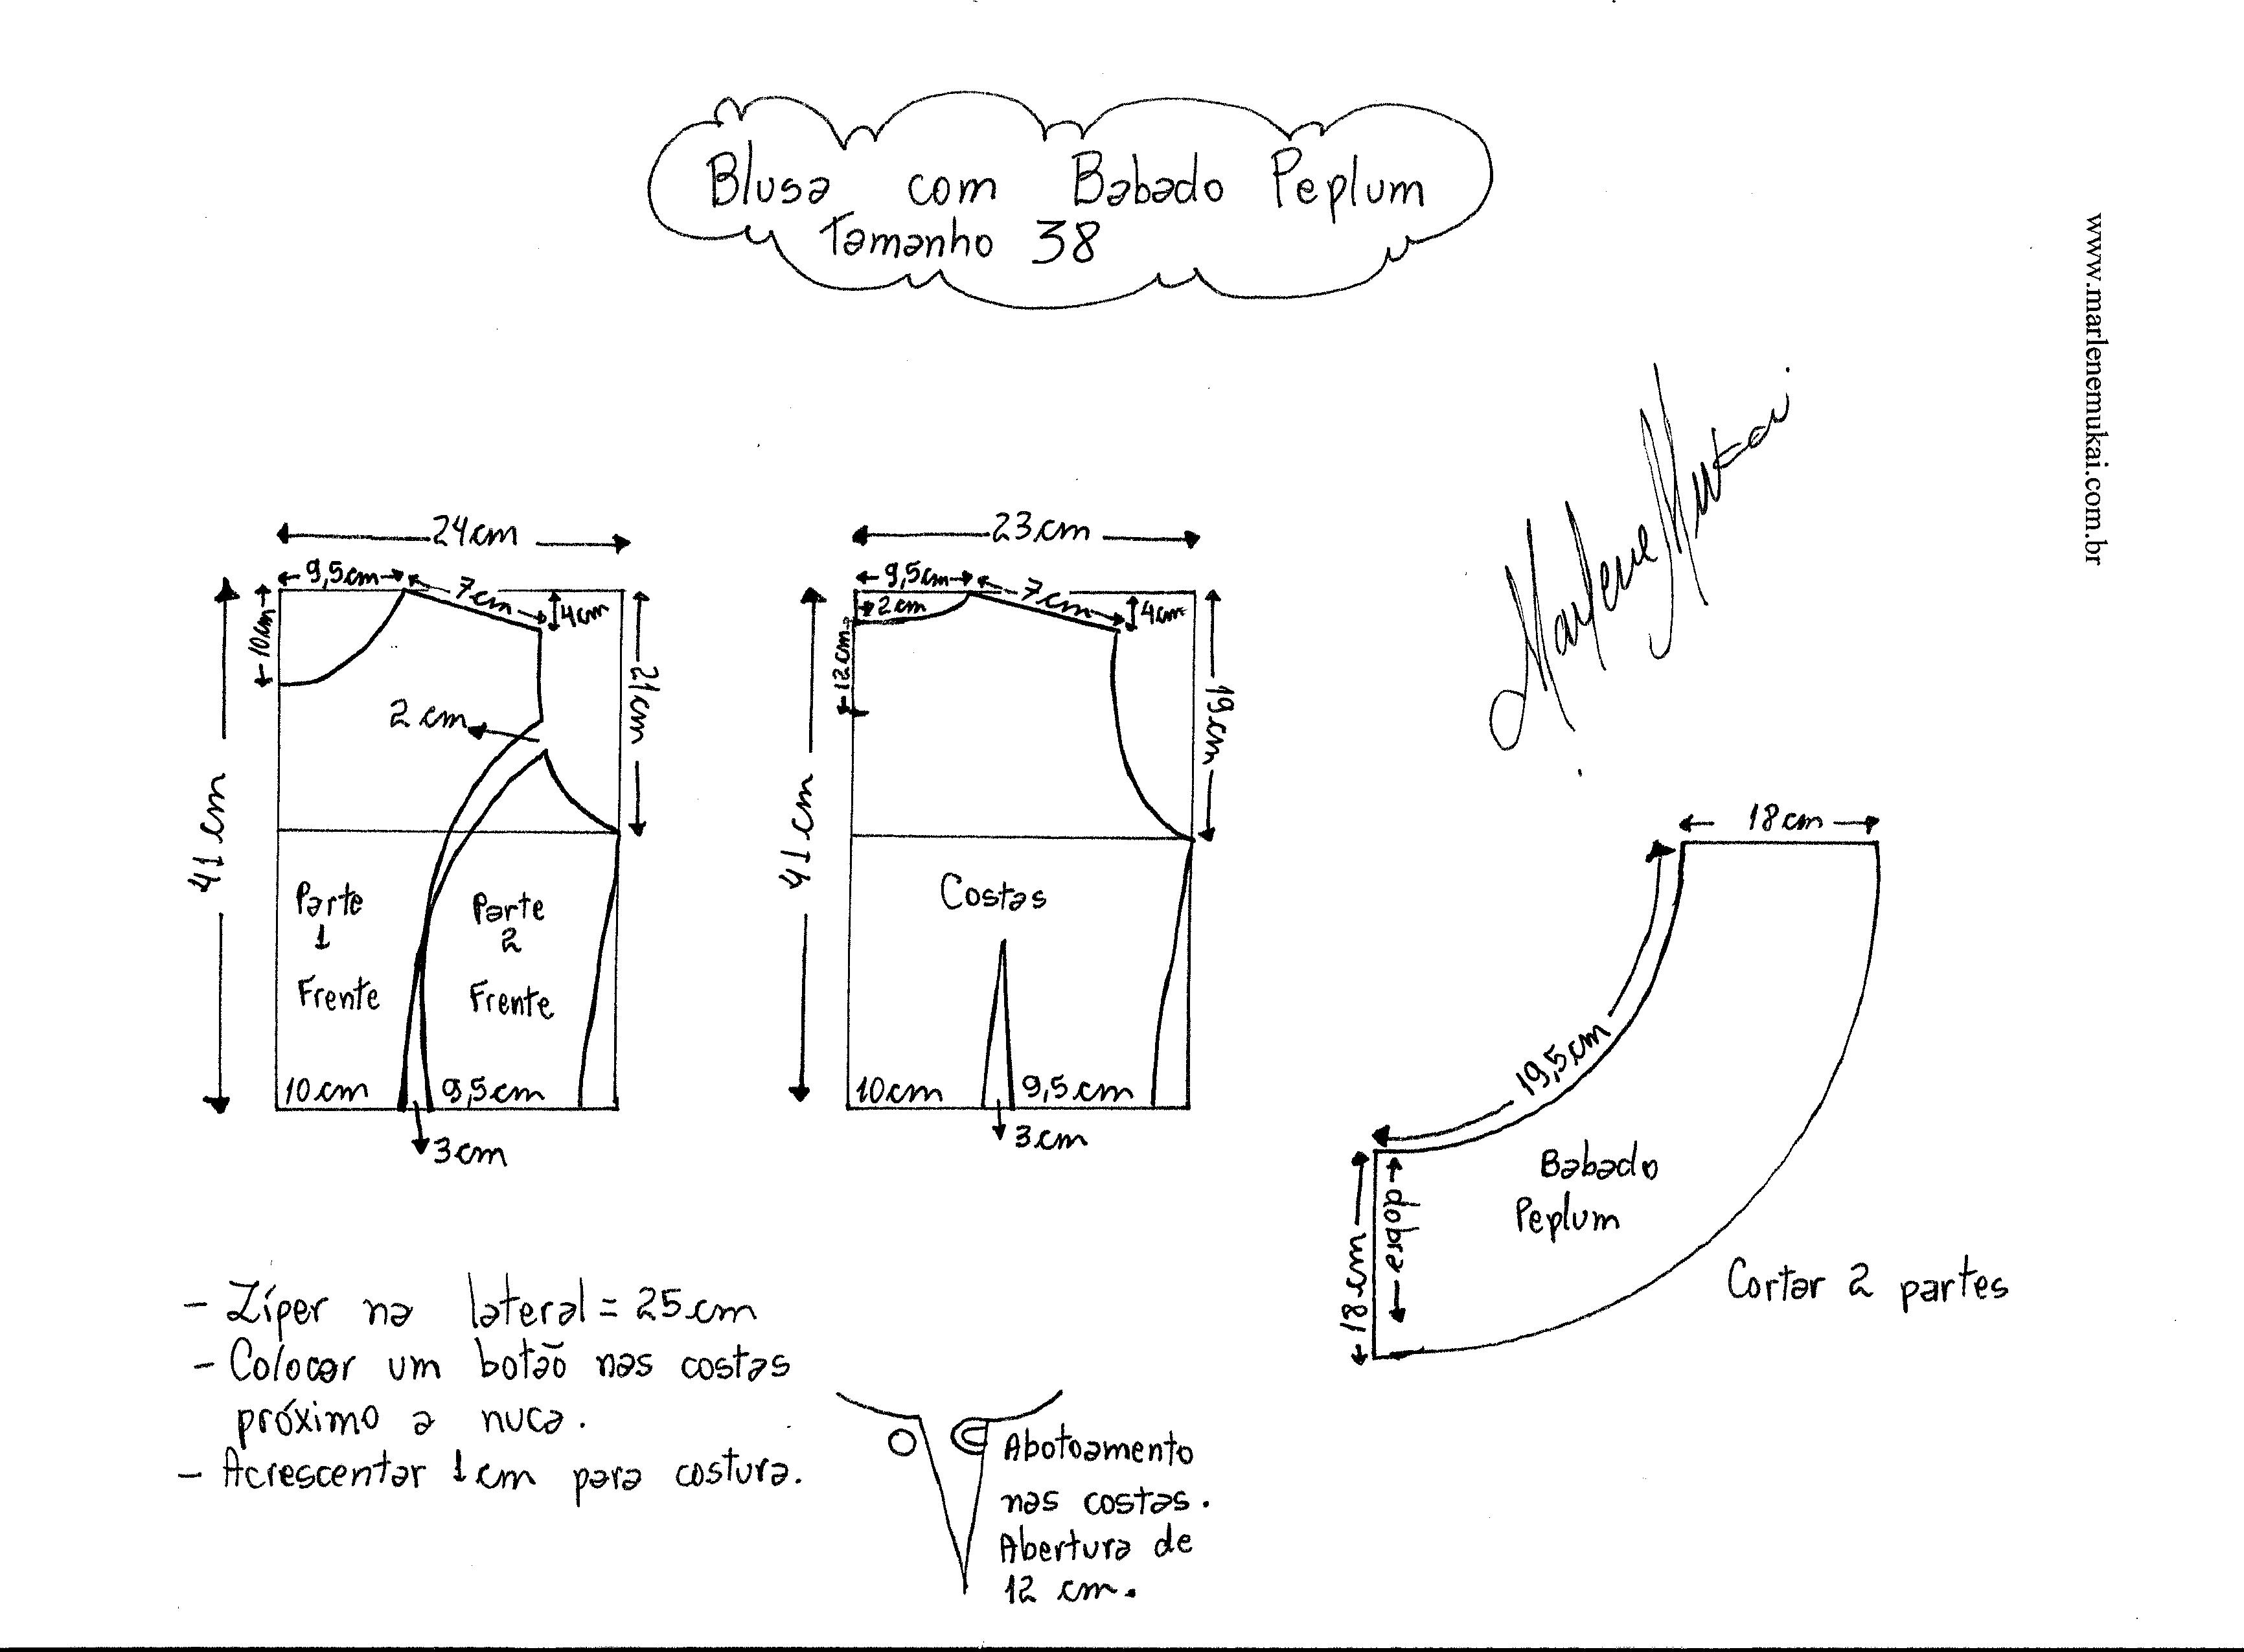 Blusa com Babado Peplum
Tamanho 38
www.marlenemukai.com.br
Marlene Mukai
24cm
9,5cm
7cm
4cm
10cm
41cm
21cm
2cm
Parte
1
Frente
Parte
2
Frente
10cm
9,5cm
3cm
23cm
9,5cm
7cm
4cm
2cm
12cm
41cm
19cm
Costas
10cm
9,5cm
3cm
18cm
19,5cm
18cm
dobra
Babado
Peplum
Cortar 2 partes
- Zíper na lateral = 25cm
- Colocar um botão nas costas
próximo a nuca.
- Acrescentar 1cm para costura.
Abotoamento
nas costas.
Abertura de
12 cm.